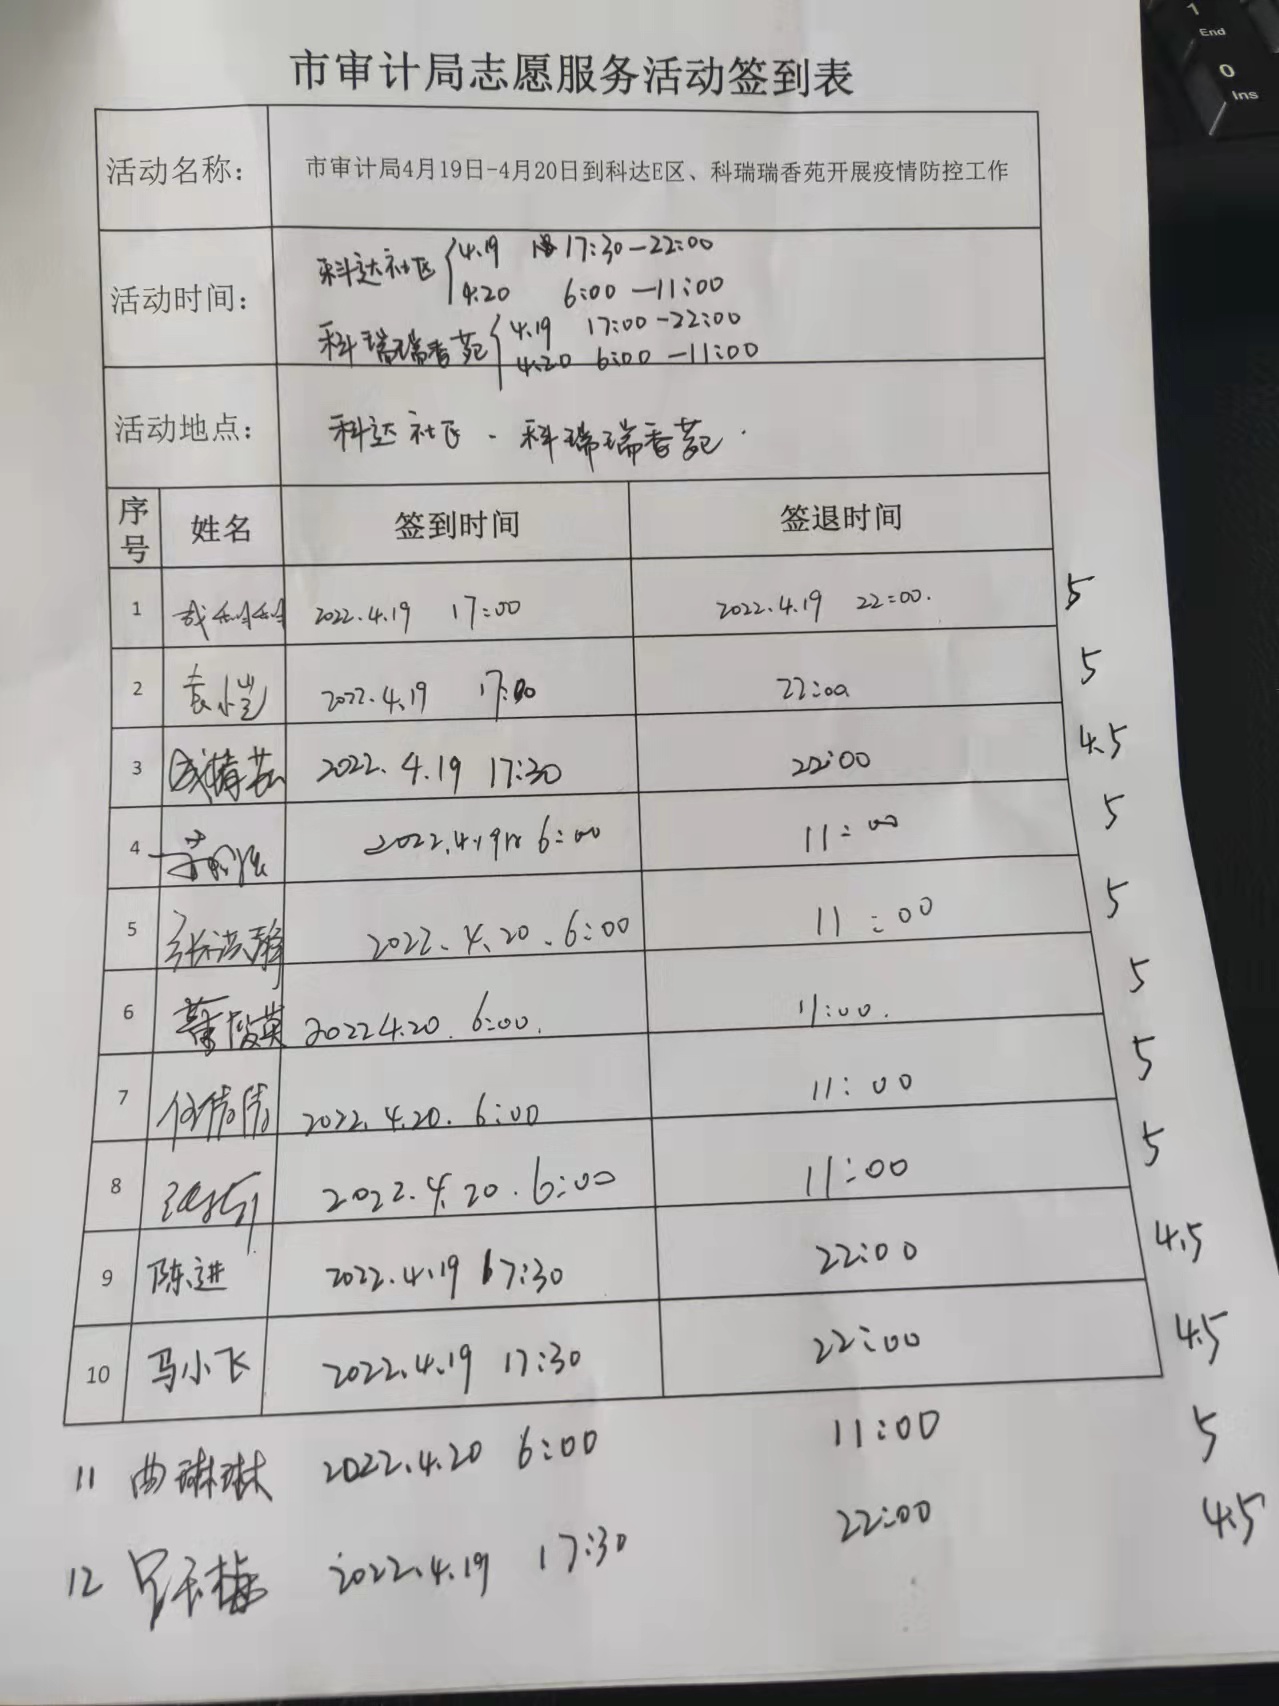 1
End
0
Ins
市审计局志愿服务活动签到表
活动名称： 市审计局4月19日-4月20日到科达E区、科瑞瑞香苑开展疫情防控工作
活动时间： 科达社区 4.19 17:30-22:00
4.20 6:00-11:00
科瑞瑞香苑 4.19 17:00-22:00
4.20 6:00-11:00
活动地点： 科达社区、科瑞瑞香苑.
序号 姓名 签到时间 签退时间
1 2022.4.19 17:00 2022.4.19 22:00. 5
2 袁小岂 2022.4.19 17:00 22:00 5
3 2022.4.19 17:30 22:00 4.5
4 2022.4.19 6:00 11:00 5
5 2022.4.20.6:00 11:00 5
6 2022.4.20.6:00. 11:00. 5
7 任倩倩 2022.4.20.6:00 11:00 5
8 2022.4.20.6:00 11:00 5
9 陈进 2022.4.19 17:30 22:00 4.5
10 马小飞 2022.4.19 17:30 22:00 4.5
11 曲琳琳 2022.4.20 6:00 11:00 5
12 2022.4.19 17:30 22:00 4.5